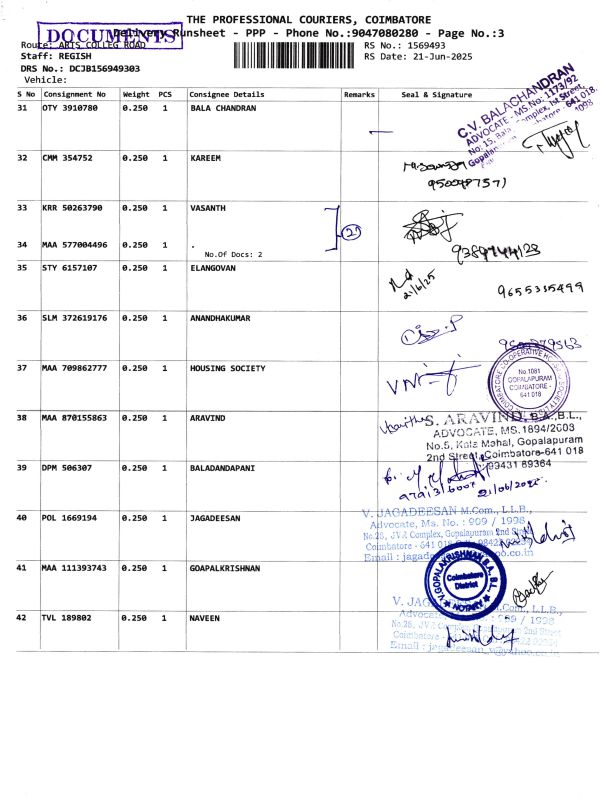 THE PROFESSIONAL COURIERS, COIMBATORE
DOCUMENTS
Delivery Runsheet - PPP - Phone No.:9047080280 - Page No.:3
Route: ARTS COLLEG ROAD
RS No.: 1569493
Staff: REGISH
RS Date: 21-Jun-2025
DRS No.: DCJB156949303
Vehicle:
S No Consignment No Weight PCS Consignee Details Remarks Seal & Signature
31 OTY 3910780 0.250 1 BALA CHANDRAN
C.V. BALACHANDRAN
ADVOCATE - MS.No: 1173/92
No: 15, Bala Complex, Ist Street,
Gopalapuram, Coimbatore - 641 018.
32 CMM 354752 0.250 1 KAREEM
33 KRR 50263790 0.250 1 VASANTH
2
34 MAA 577004496 0.250 1 .
No.Of Docs: 2
9389744123
35 STY 6157107 0.250 1 ELANGOVAN
21/6/25
9655335499
36 SLM 372619176 0.250 1 ANANDHAKUMAR
37 MAA 709862777 0.250 1 HOUSING SOCIETY
No.1081
GOPALAPURAM
COIMBATORE -
641 018
38 MAA 870155863 0.250 1 ARAVIND
S. ARAVIND, B.A.,B.L.,
ADVOCATE, MS. 1894/2003
No.5, Kala Mahal, Gopalapuram
2nd Street, Coimbatore-641 018
99431 89364
39 DPM 506307 0.250 1 BALADANDAPANI
21/06/2025
40 POL 1669194 0.250 1 JAGADEESAN
V. JAGADEESAN M.Com., L.L.B.,
Advocate, Ms. No. : 909 / 1998
No.26, JV.2 Complex, Gopalapuram 2nd Street
Coimbatore - 641 018
41 MAA 111393743 0.250 1 GOAPALKRISHNAN
V. GOPALAKRISHNAN B.A., B.L.,
Coimbatore
District
NOTARY
42 TVL 189802 0.250 1 NAVEEN
Email : jagadeesan_v@yahoo.co.in